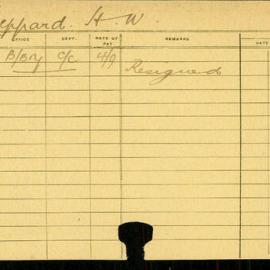 eppard. H. W.
OFFICE DEPT. RATE OF PAY REMARKS DATE
B/Bry C/C 4/9 Resigned